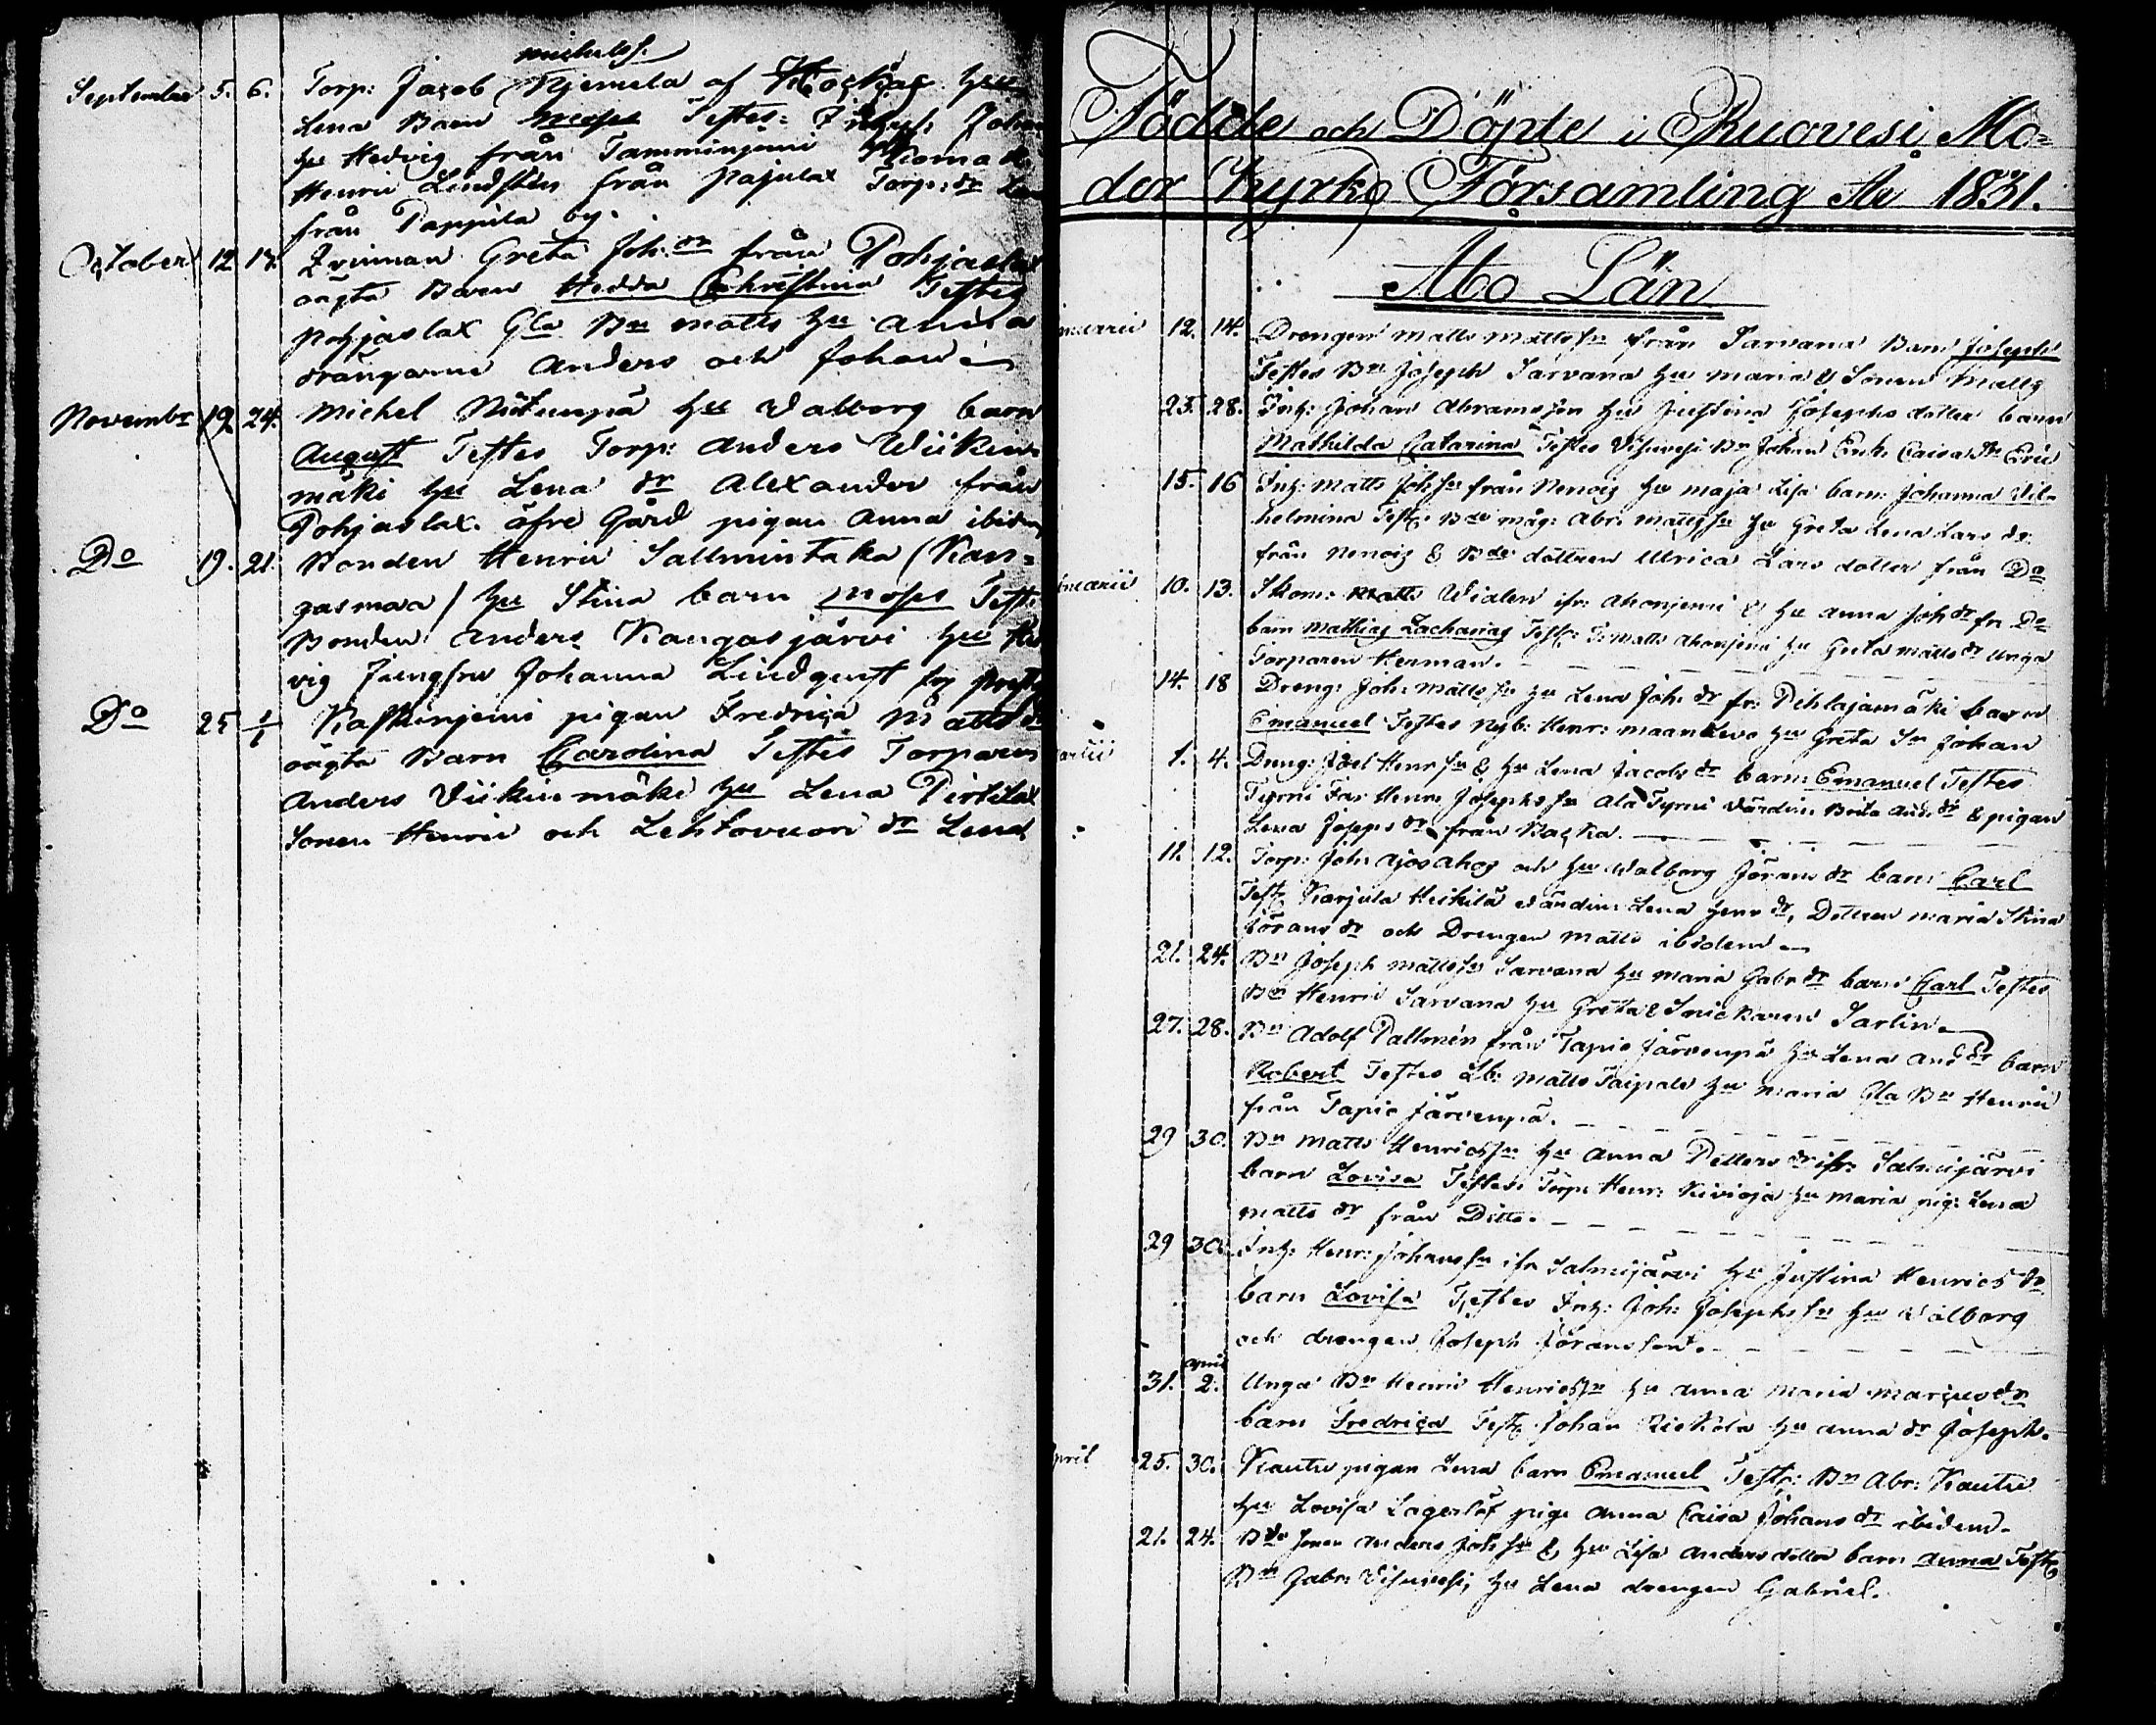 michelsf.
September 5. 6. Torp: Jacob Njemela af hu
Lena Barn Moses Testes: Inhys: Johan
hu Hedvig från Tamminjemi Skoma
Henric Lindsten från Pajulax Torp: dr
från Pappila by.
October 12 17. Qvinnan Greta Joh: dr från Pohjaslax
oägta Barn Hedda Christina Testes
Pohjaslax Gla Bn Matts hu Anna
drängarne Anders och Johan
Novembr 19 24. Michel hu Walborg barn
August Testes Torp: Anders Wiikin-
mäki hu Lena dr Alexander från
Pohjaslax öfre Gård pigan Anna ibidm
Do 19. 21 Bonden Henric Sallmintaka (Kan-
gasmaa/ hu Stina barn Moses Test:
Bonden Anders Kangasjärvi hu
vig Jungfru Johanna Lindqvist
Do 25 1/1 Kaskinjemi pigan Fredrica Matts dr
oägta Barn Carolina Testes Torparen
Anders Viikinmäki hu Lena Pirtilax
Sonen Henric och Lehtovuori dr Lena
Födde och Döpte i Ruovesi Mo-
der Kyrko Församling År 1831.
Åbo Län
nuarii 12. 14. Drengen Matts Mattssn från Sarvana Barn Joseph
Testes Bn Joseph Sarvana hu Maria & Sonen Matts
23. 28. Inh: Johan Abramsson hu Justina Josephs dotter barn
Mathilda Catarina Testes Visuvesi Bn Johan Enk. Caisa Eric
15. 16 Inh: Matts Johssn från Nenois hu Maja Lisa barn: Johanna Vil-
helmina Test: Bde måg: Abr: Mattssn hu Greta Lena Lars dr
från Nenois & Bde dottren Ulrica Lars dotter från Do
bruarii 10. 13. Skom: Matts Widlen ifr: Ahonjemi & hu Anna Joh dr fr Do
barn Mathias Zacharias Test: Matts Ahonjemi hu Greta Matts dr Unga
Torparen Herman.
14. 18 Dreng: Joh: Mattssn hu Lena Joh: dr fr: Pihlajamäki barn
Emanuel Testes Nyb: Henr: Maankivo hu Greta Sn Johan
artii 1. 4. Dreng: Joel Henrssn & hu Lena Jacobs dr barn: Emanuel Testes
Tyrni Henr: Josephssn Ala Tyrni Värdin: Brita And: dr & pigan
Lena Josephs dr från Kacka.
11. 12. Torp: Joh: Ajosahos och hu Walborg Jörans dr barn Carl
Test: Karjula Heikilä värdin: Lena Henr dr, Dottren Maria Stina
Jörans dr och Drengen Matts ibidem
21. 24. Bn Joseph Mattssn Sarvana hu Maria Gabr dr barn Carl Testes
Bn Henric Sarvana hu Greta & Snickaren Sarlin
27. 28. Bn Adolf Pallmén från Tapio Järvenpä hu Lena And dr barn
Robert Testes Lb: Matts Taipale hu Maria Gla Bn Henric
från Tapio Järvenpä.
29 30. Bn Matts Henricssn hu Anna Petters dr ifr: Salmijärvi
barn Lovisa Testes: Torp: Henr: Kivioja hu Maria pig: Lena
Matts dr från Ditto.
29 30. Inh: Henr: Johanssn ifr Salmijärvi hu Justina Henrics dr
barn Lovisa Testes Inh: Joh: Josephssn hu Walborg
och drengen Joseph Jöransson.
31. april 2. Unga Bn Henric Henricssn hu Anna Maria Marcus dr
barn Fredrica Test: Johan hu Anna dr Joseph.
pril 25. 30. Kautu pigan Lena barn Emanuel Test: Bn Abr: Kautu
hu Lovisa Lagerlöf pig: Anna Caisa Johans dr ibidem.
21. 24. Bde Sonen Anders Johssn & hu Lisa Anders dotter barn Anna Test:
Bn Gabr: Visuvesi, hu Lena drengen Gabriel.